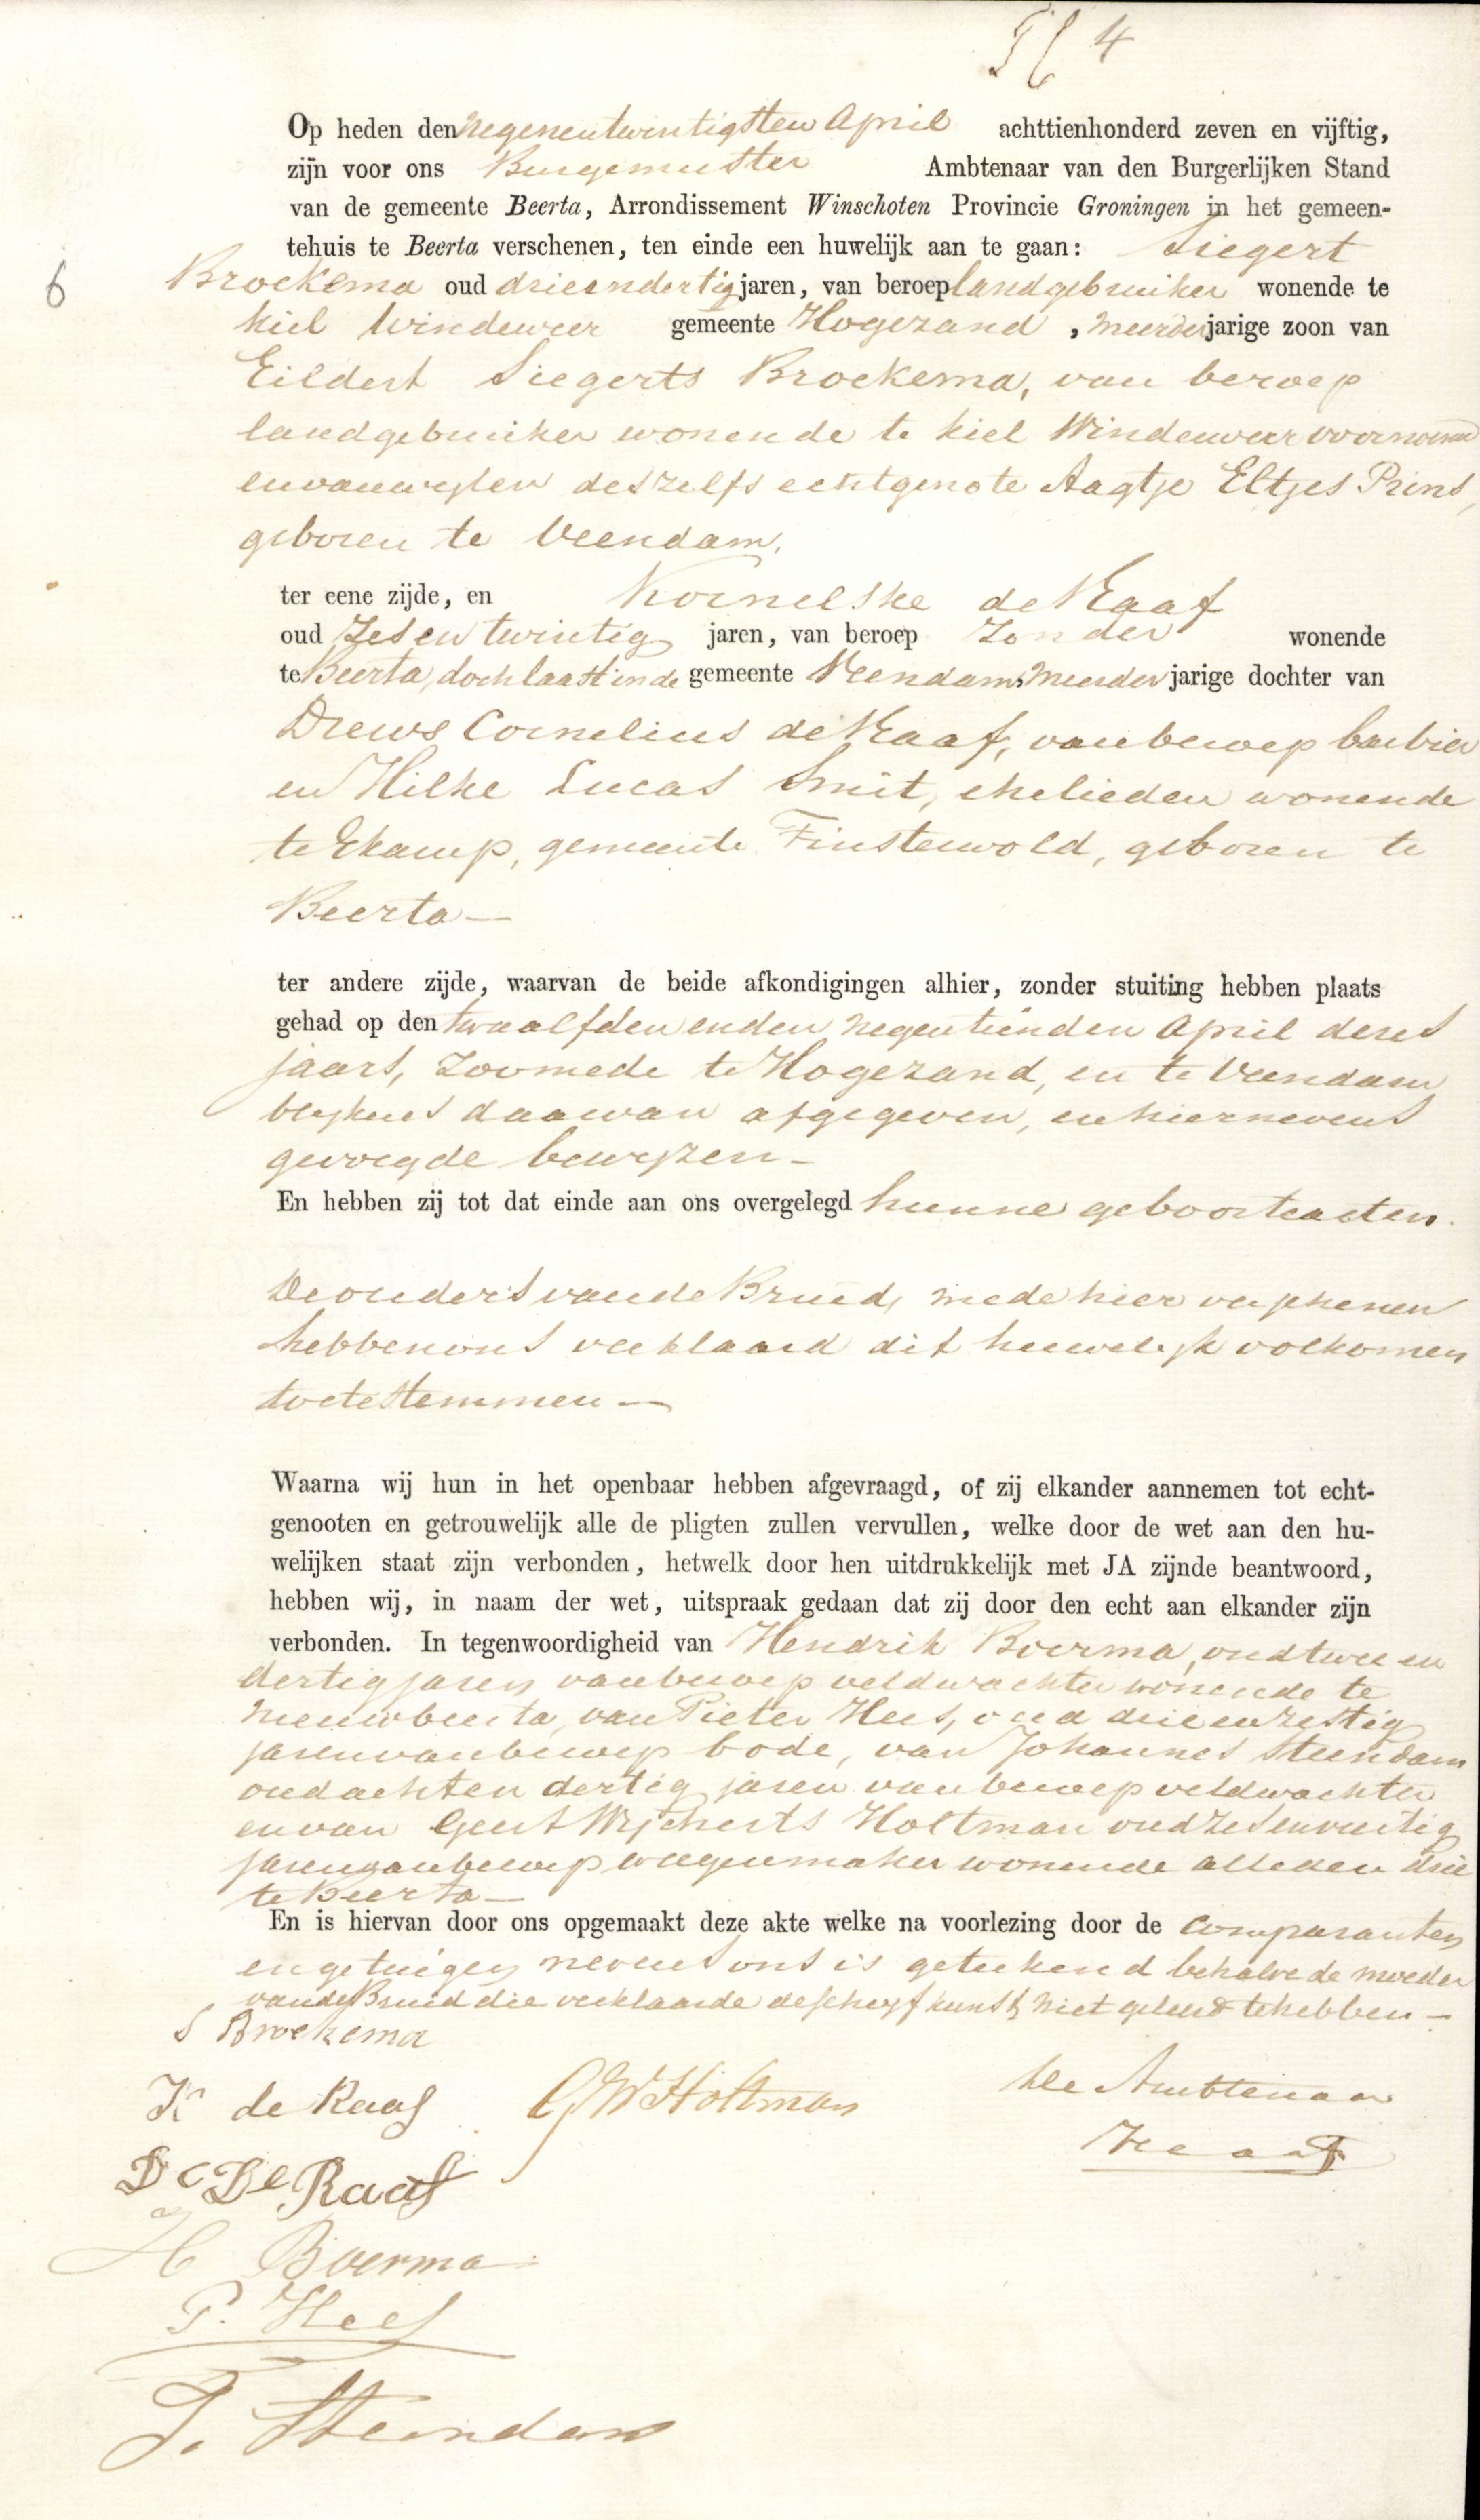 4
Op heden den negenentwintigsten April achttienhonderd zeven en vijftig,
zijn voor ons Burgemeester Ambtenaar van den Burgerlijken Stand
van de gemeente Beerta, Arrondissement Winschoten Provincie Groningen in het gemeen-
tehuis te Beerta verschenen, ten einde een huwelijk aan te gaan: Siegert
6
Broekema oud drieendertig jaren, van beroep landgebruiker wonende te
kiel Windeweer gemeente Hogezand, meerderjarige zoon van
Eildert Siegerts Broekema, van beroep
landgebruiker wonende te kiel Windeweer voornoemd
en van wylen deszelfs echtgenote Aagtje Eltjes Prins,
geboren te Veendam,
ter eene zijde, en Kornelske de Raaf
oud zes en twintig jaren, van beroep zonder wonende
te Beerta, doch laatst in de gemeente Veendam, meerderjarige dochter van
Drews Cornelius de Raaf, van beroep barbier
en Hilke Lucas Smit, ehelieden wonende
te Ekamp, gemeente Finsterwold, geboren te
Beerta —
ter andere zijde, waarvan de beide afkondigingen alhier, zonder stuiting hebben plaats
gehad op den twaalfden en den negentienden April dezes
jaars, zoomede te Hogezand, en te Veendam
blykens daarvan afgegeven, en hiernevens
gevoegde bewyzen —
En hebben zij tot dat einde aan ons overgelegd hunne geboorteacten.
De ouders van de Bruid, mede hier verschenen
hebben ons verklaard dit huwelyk volkomen
toetestemmen —
Waarna wij hun in het openbaar hebben afgevraagd, of zij elkander aannemen tot echt-
genooten en getrouwelijk alle de pligten zullen vervullen, welke door de wet aan den hu-
welijken staat zijn verbonden, hetwelk door hen uitdrukkelijk met JA zijnde beantwoord,
hebben wij, in naam der wet, uitspraak gedaan dat zij door den echt aan elkander zijn
verbonden. In tegenwoordigheid van Hendrik Boerma, oud twee en
dertig jaren van beroep veldwachter wonende te
Nieuwbeerta, van Pieter Hees, oud drie en zestig
jaren van beroep bode, van Johannes Steendam
oud acht en dertig jaren van beroep veldwachter
en van Geert Wycherts Holtman oud zes en veertig
jaren van beroep wagenmaker wonende alle den drie
te Beerta —
En is hiervan door ons opgemaakt deze akte welke na voorlezing door de comparanten
en getuigen nevens ons is getekend behalve de moeder
van de Bruid die verklaarde de schryfkunst niet geleerd te hebben —
S Broekema
K de Raaf
G W Holtman
De Ambtenaar
D C De Raaf
H Boerma
P. Hees
J. Steendam